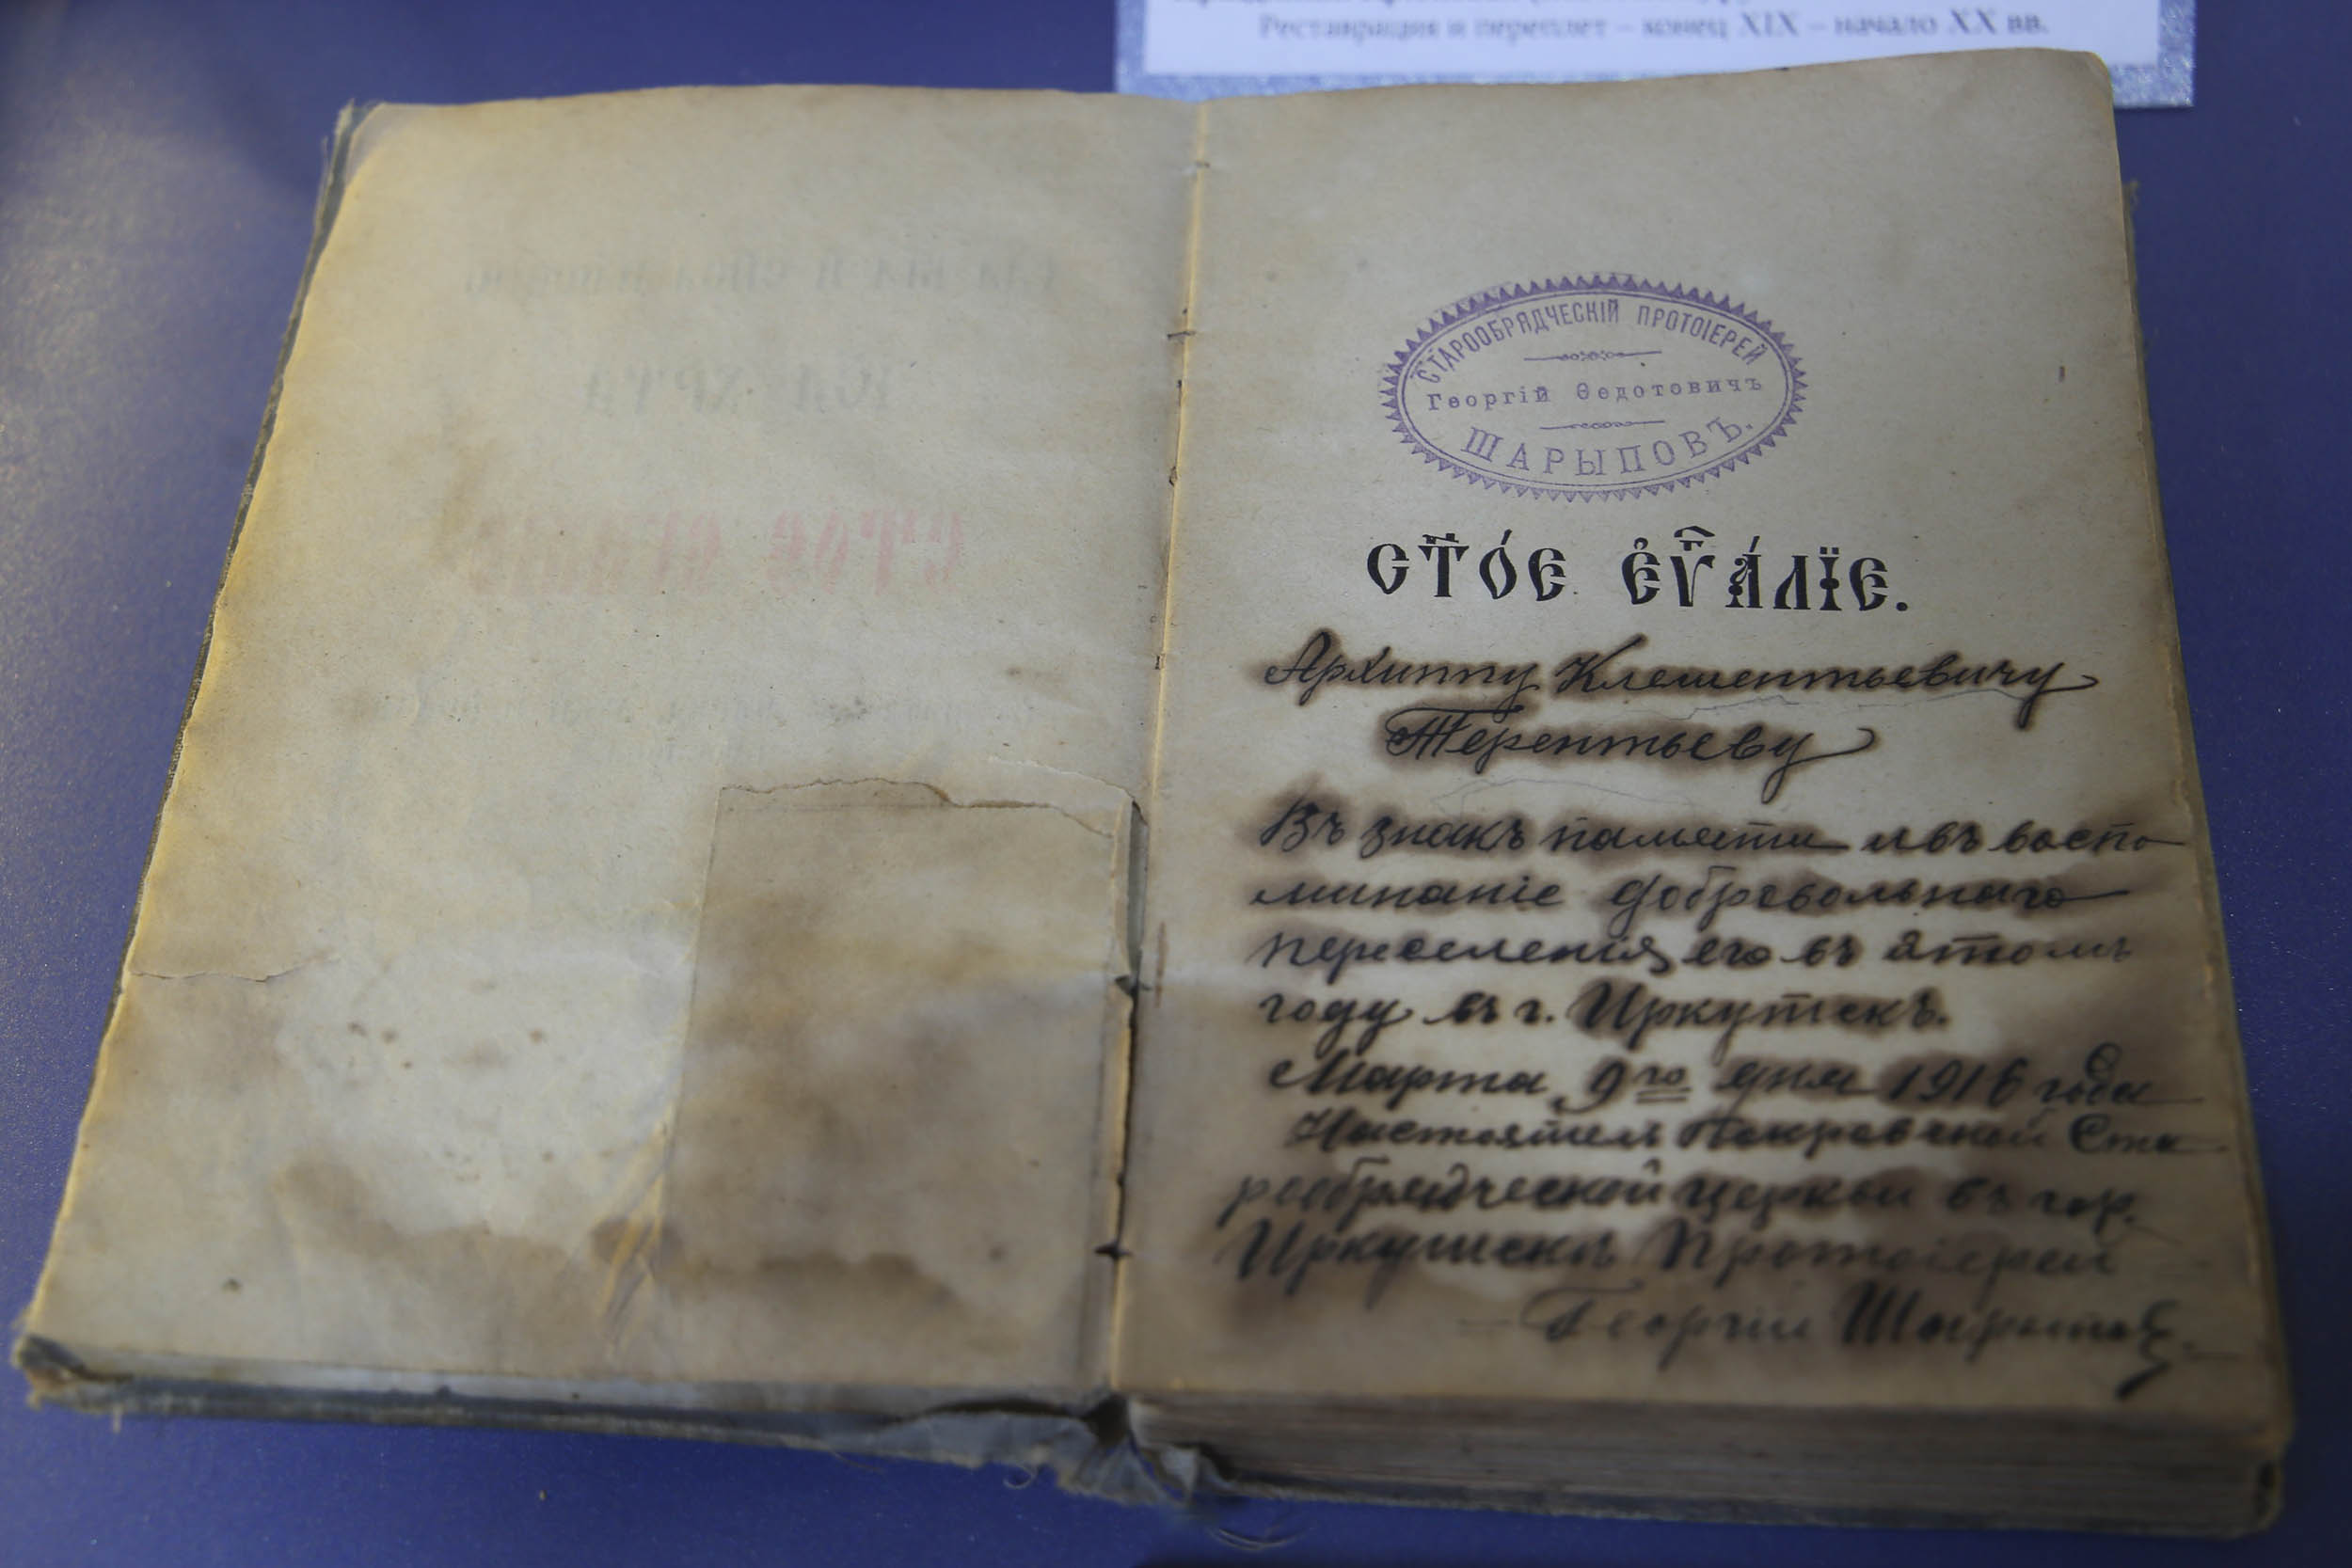 Реставрация и переплет – конец XIX – начало XX вв.
СТАРООБРЯДЧЕСКІЙ ПРОТОІЕРЕЙ
Георгій Ѳедотовичъ
ШАРЫПОВЪ.
СТ҃О́Е Е҆ѴⷢА́ЛЇЕ.
Архиппу Клементьевичу
Терентьеву
Въ знакъ памяти и въ воспо
минаніе добровольнаго
переселенія его въ этомъ
году въ г. Иркутскъ.
Марта 9го дня 1916 года
Настоятель Покровской Ста
рообрядческой церкви въ гор.
Иркутскѣ Протоіерей
Георгій Шарыповъ